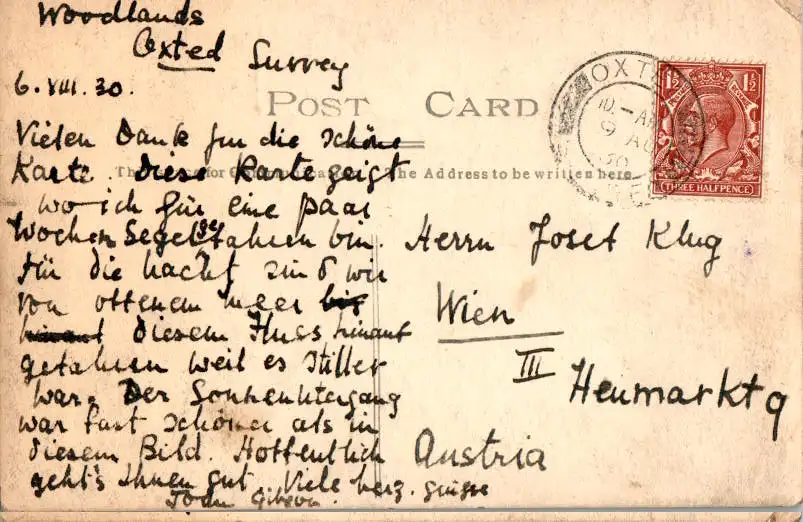 Woodlands
Oxted Surrey
6. VIII. 30.
POST CARD
Vielen Dank fur die schöne
Karte. Diese Karte zeigt
wo ich für eine paar
Wochen Segelgefahren bin.
Für die nacht sind wir
von offenem meer bis
hinauf diesem Fluss hinauf
gefahren weil es stiller
war. Der Sonnenuntergang
war fast schöner als in
diesem Bild. Hoffentlich
geht's Ihnen gut. Viele herz. Grüsse
John Gibson.
The Address to be written here
Herrn Josef Klug
Wien
III
Heumarkt 9
Austria
OXTED
10 - AM
9 AU
30
1½ 1½
THREE HALFPENCE